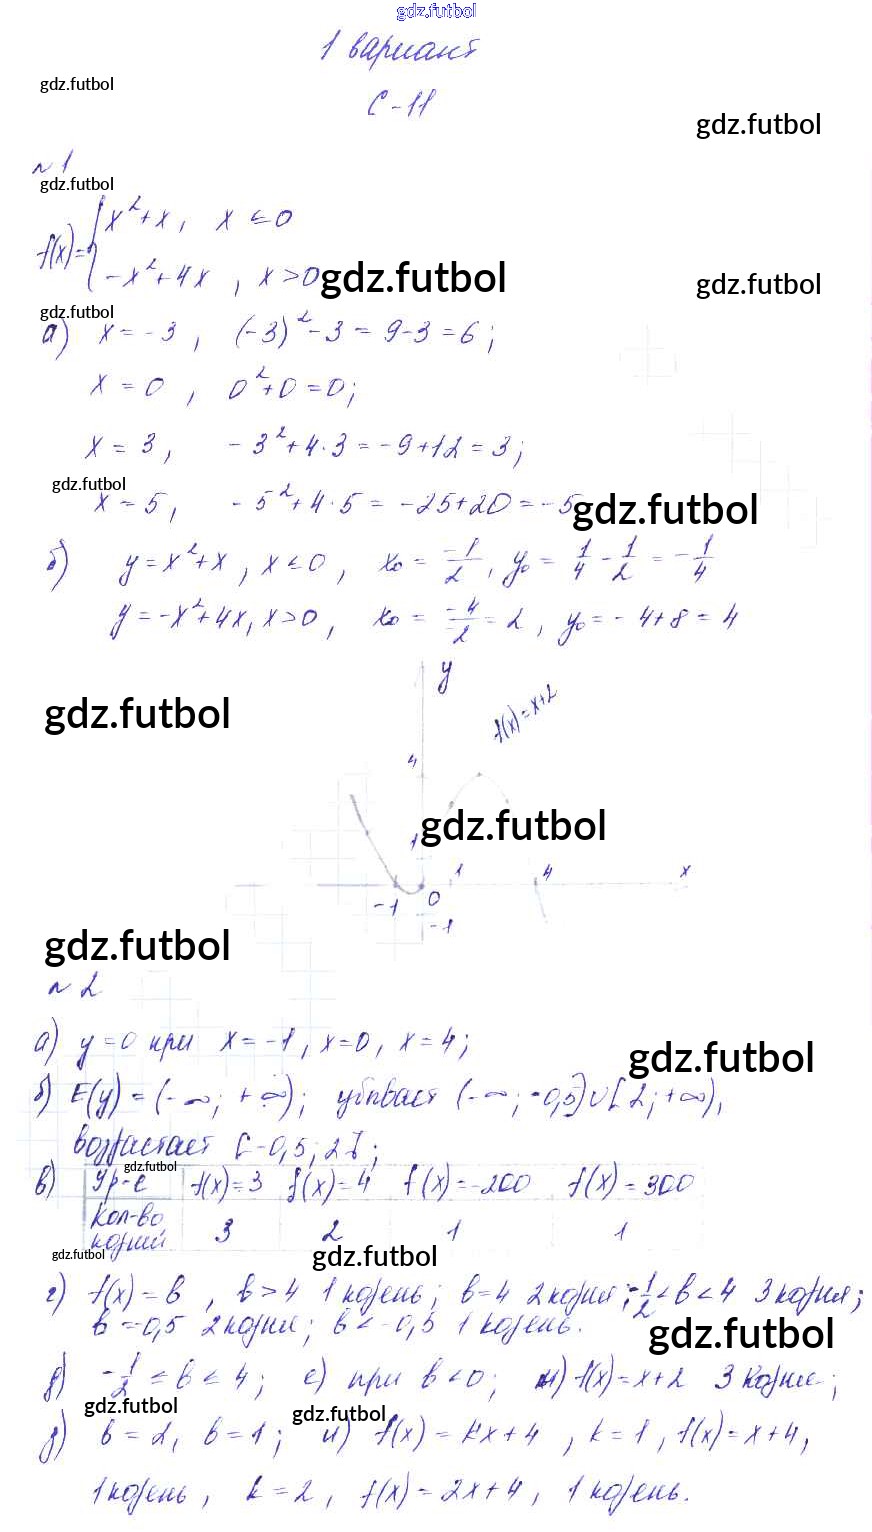 gdz.futbol
1 вариант
gdz.futbol
С-11
gdz.futbol
№1
gdz.futbol
f(x)={x²+x, x ≤ 0
-x²+4x, x > 0
gdz.futbol
gdz.futbol
gdz.futbol
а) x = -3, (-3)²-3 = 9-3 = 6;
x = 0, 0²+0 = 0;
x = 3, -3²+4·3 = -9+12 = 3;
gdz.futbol
x = 5, -5²+4·5 = -25+20 = -5
gdz.futbol
б) y = x²+x, x ≤ 0, x₀ = -1/2, y₀ = 1/4 - 1/2 = -1/4
y = -x²+4x, x>0, x₀ = -4/-2 = 2, y₀ = -4+8 = 4
y
f(x)=x+2
gdz.futbol
4
gdz.futbol
1
1
4
x
-1
0
-1
gdz.futbol
№2
а) y=0 при x=-1, x=0, x=4;
gdz.futbol
б) E(y) = (-∞; +∞); убывает (-∞; -0,5] ∪ [2; +∞),
возрастает [-0,5; 2];
gdz.futbol
в) Ур-е f(x)=3 f(x)=4 f(x)=-200 f(x)=300
Кол-во корний 3 2 1 1
gdz.futbol
gdz.futbol
г) f(x)=b, b>4 1 корень; b=4 2 корня; -1/2<b<4 3 корня;
b=-0,5 2 корни; b<-0,5 1 корень.
gdz.futbol
д) -1/2 ≤ b ≤ 4; е) при b<0; ж) f(x)=x+2 3 корне;
gdz.futbol
gdz.futbol
з) b=2, b=1; и) f(x)=kx+4, k=1, f(x)=x+4,
1 корень, k=2, f(x)=2x+4, 1 корень.